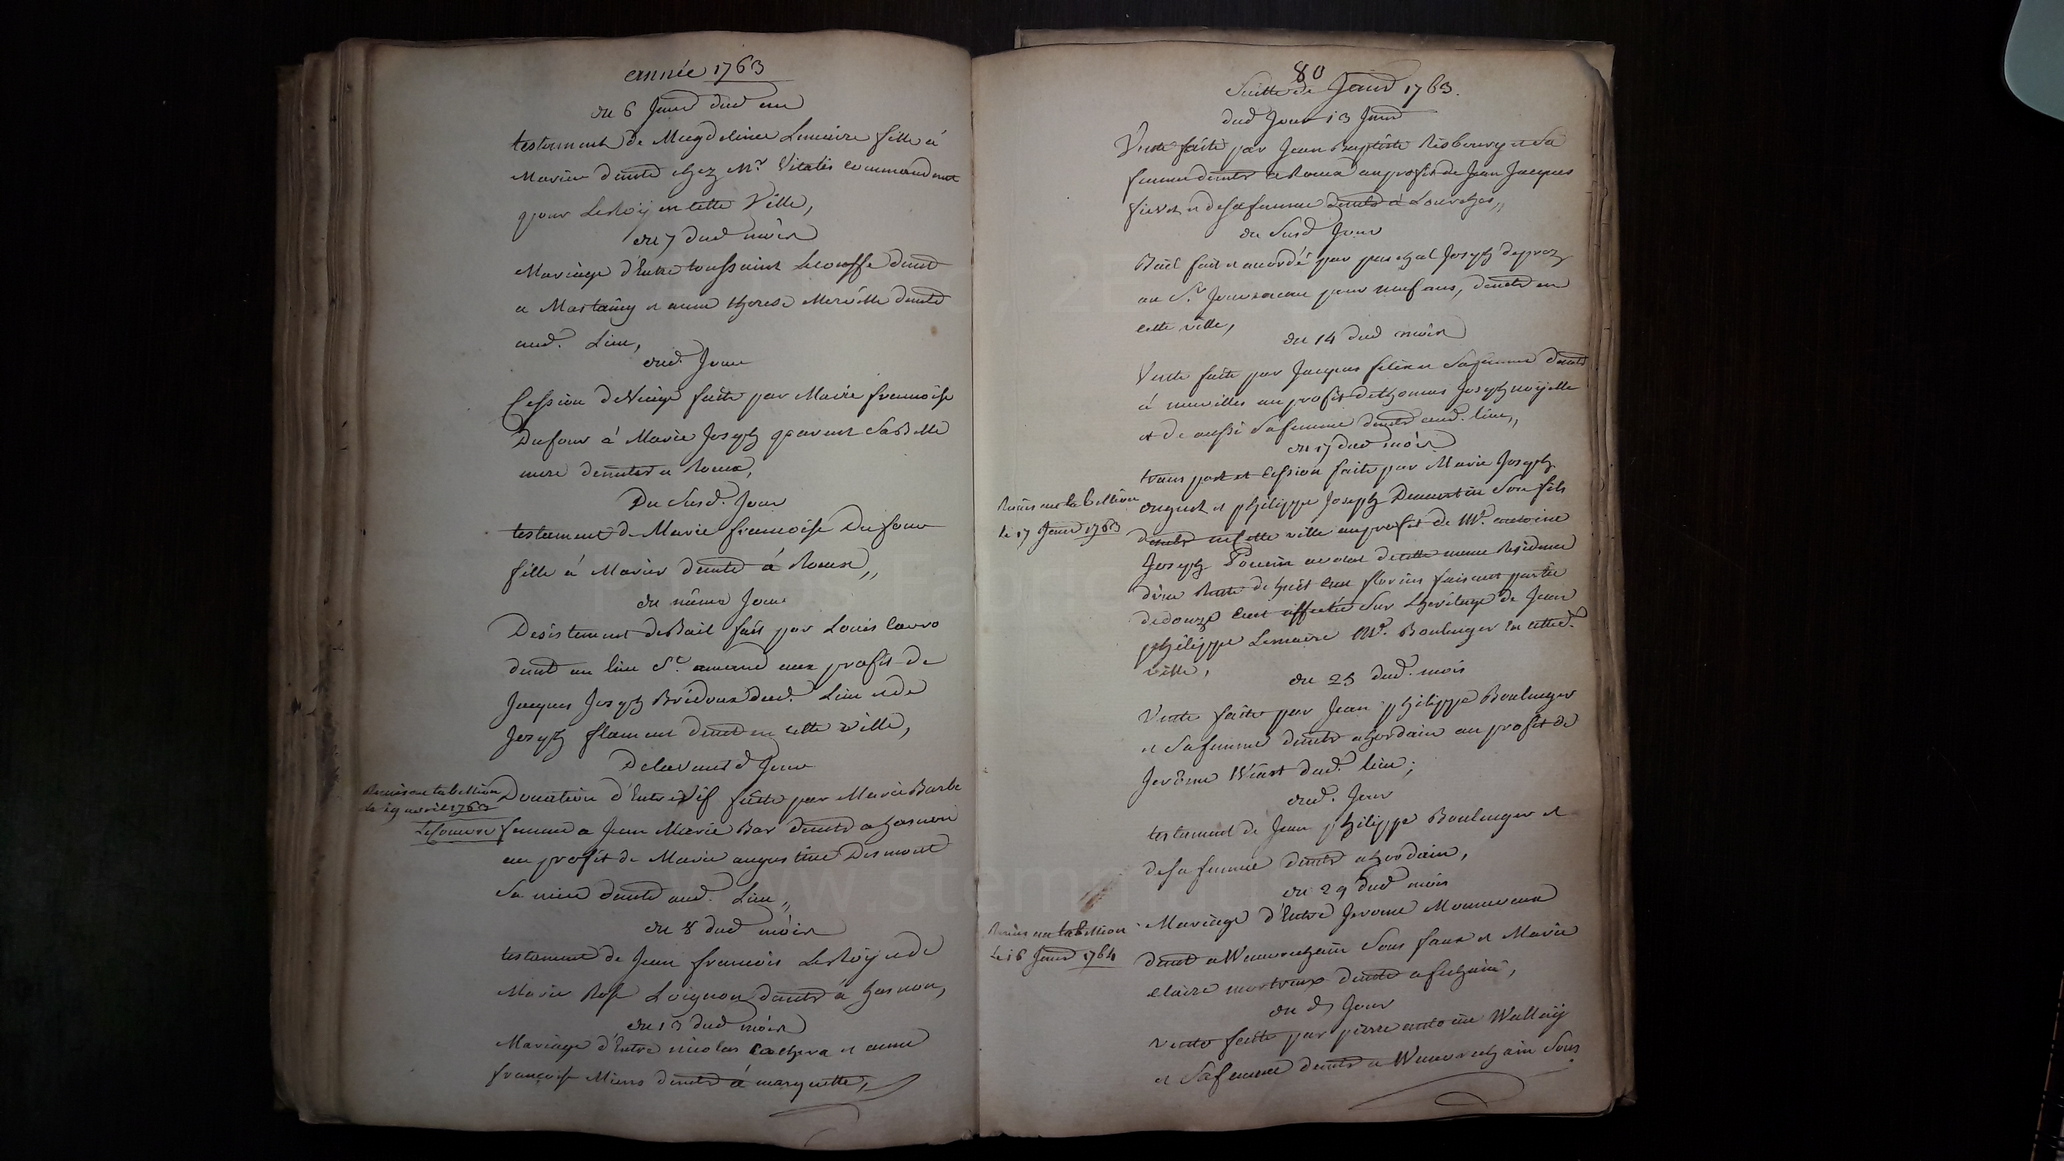 année 1763
du 6 Janv. dud. an
testament de Magdeleine Lemaire fille à
Marier demt. chez Mr. Vitalis commandant
pour Le Roÿ en cette Ville,
du 7 dud mois
Mariage d'Entre toussaint Lecouffe demt
a Mastaing et anne therese Merville demte
aud. Lieu,
dud. Jour
Cession de Viage faite par Marie francoise
Dufour à Marie Joseph quarent sa Belle
mere demtes a Roeux,
Du susd. Jour
testament de Marie francoise Dufour
fille à Marier demte à Roeux,,
du même Jour
Desistement de Bail fait par Louis
demt au lieu St. amand aux profit de
Jacques Joseph Bridoux dud. Lieu et de
Joseph flament demt en cette ville,
De l'avant d Jour
Remis au tabellion
le 29 avril 1763
Donation d'Entre Vif faite par Marie Barbe
femme a Jean Marie Bar demte a hasnon
au profit de Marie augustine Dismont
Sa niece demte aud. Lieu,,
du 8 dud mois
testament de Jean francois Le Roÿ et de
Marie Rose Loignon demts à hasnon,
du 13 dud mois
Mariage d'Entre nicolas Cachera et anne
francoise Miens demts à marquette,
80
Suitte de Janv 1763.
dud Jour 13 Janv
Vente faite par Jean Baptiste Risbourg et Sa
femme demts a Roeux au profit de Jean Jacques
fievet et de sa femme demts à Lourches,,
du Susd Jour
Bail fait et acordé par paschal Joseph deprez
au Sr. Jouveneau pour neuf ans, demts en
cette ville,
du 14 dud mois
Vente faite par Jacques felix et Sa femme demts
à neuvilles au profit de thomas Joseph noÿelle
et de aussi Sa femme demts aud. lieu,,
du 17 dud mois
Remis au tabellion
le 17 Janv 1763
transport et Cession faite par Marie Joseph
et philippe Joseph Demortin Son fils
demts en Cette ville au profit de Mr. antoine
Joseph Poucin avocat de cette meme Residence
d'une Rente de huit cent florins faisant partie
de douze Cent affectée Sur L'heritage de Jean
philippe Lemaire Mr. Boulenger en cette d.
ville,
du 25 dud. mois
Vente faite par Jean philippe Boulenger
et Sa femme demts a hordain au profit de
Jerôme Wiart dud. lieu;
dud. Jour
testament de Jean philippe Boulenger et
de sa femme demts a hordain,
du 29 dud mois
Remis au tabellion
Le 16 Janv 1764
Mariage d'Entre Jerome Monneveux
demt a Wavrechain Sous faux et Marie
Claire mortreux demte a fechain,
du d Jour
Vente faite par pierre antoine Wallaÿ
et Sa femme demts a Wavrechain Sous